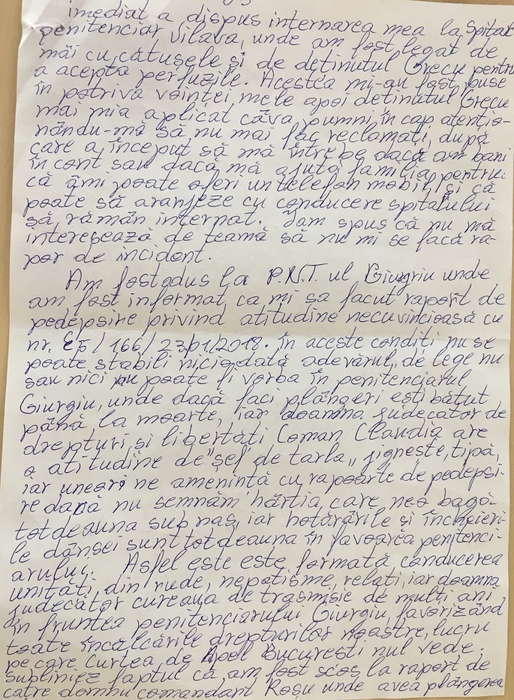 imediat a dispus internarea mea la spital
penitenciar Jilava, unde am fost legat de
măi cu cătușele și de deținutul Grecu pentru
a acepta perfuzile. Acestea mi-au fost puse
în potriva voinței mele apoi deținutul Grecu
mai mia aplicat câva pumni în cap atențio-
nându-mă să nu mai fac reclamați, după
care a început să mă întrebe dacă am bani
în cont sau dacă mă ajută familia, pentru
că âmi poate oferi un telefon mobil și că
poate să aranjeze cu conducere spitalului
să rămân internat. Iam spus că nu mă
interesează de teamă să nu mi se facă ra-
por de incident.
Am fost adus la P.N.T. ul Giugriu unde
am fost informat ca mi sa facut raport de
pedepsire privind atitudine necuvincioasă cu
nr. 166/23/01/2018. în aceste conditi nu se
poate stabili niciodată adevărul, de lege nu
sau nici nu poate fi vorba în penitenciarul
Giurgiu, unde dacă faci plângeri ești bătut
până la moarte, iar doamna judecător de
drepturi și libertăți Coman Claudia are
o atitudine de "șef de tarla„ jignește, țipă,
iar uneori ne amenință cu rapoarte de pedepsi-
re dacă nu semnăm hârtia, care neo bagă
totdeauna sup nas, iar hotărârile și încheieri-
le dânsei sunt totdeauna în favoarea penitenci-
arului. Asfel este este formată conducerea
unități, din rude, nepotisme, relați, iar doamna
judecător cureaua de trasmisie de mulți ani,
în fruntea penitenciarului Giurgiu, favorizând
toate încălcările drepturilor noastre, lucru
pe care Curtea de Apel București nul vede.
Subliniez faptul că, am fost scos la raport de
către domnu comandant Roșu unde avea plângerea